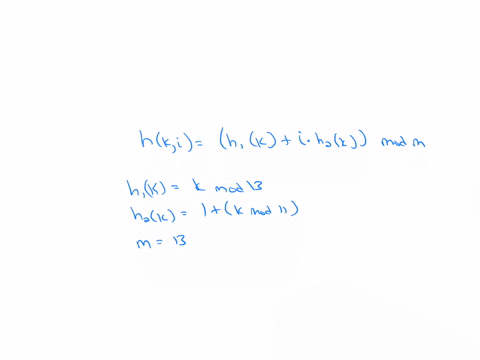 h(k,i) = (h₁(k) + i·h₂(k)) mod m
h₁(k) = k mod 13
h₂(k) = 1 + (k mod 11)
m = 13